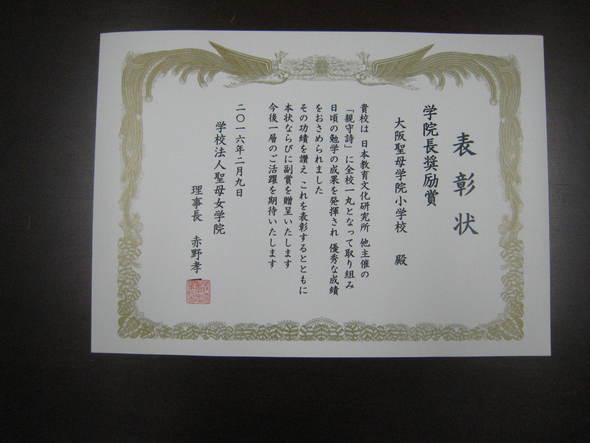 表彰状
学院長奨励賞
大阪聖母学院小学校 殿
貴校は 日本教育文化研究所 他主催の
「親守詩」に全校一丸となって取り組み
日頃の勉学の成果を発揮され 優秀な成績
をおさめられました
その功績を讃え これを表彰するとともに
本状ならびに副賞を贈呈いたします
今後一層のご活躍を期待いたします
二〇一六年二月九日
学校法人聖母女学院
理事長 赤野孝一